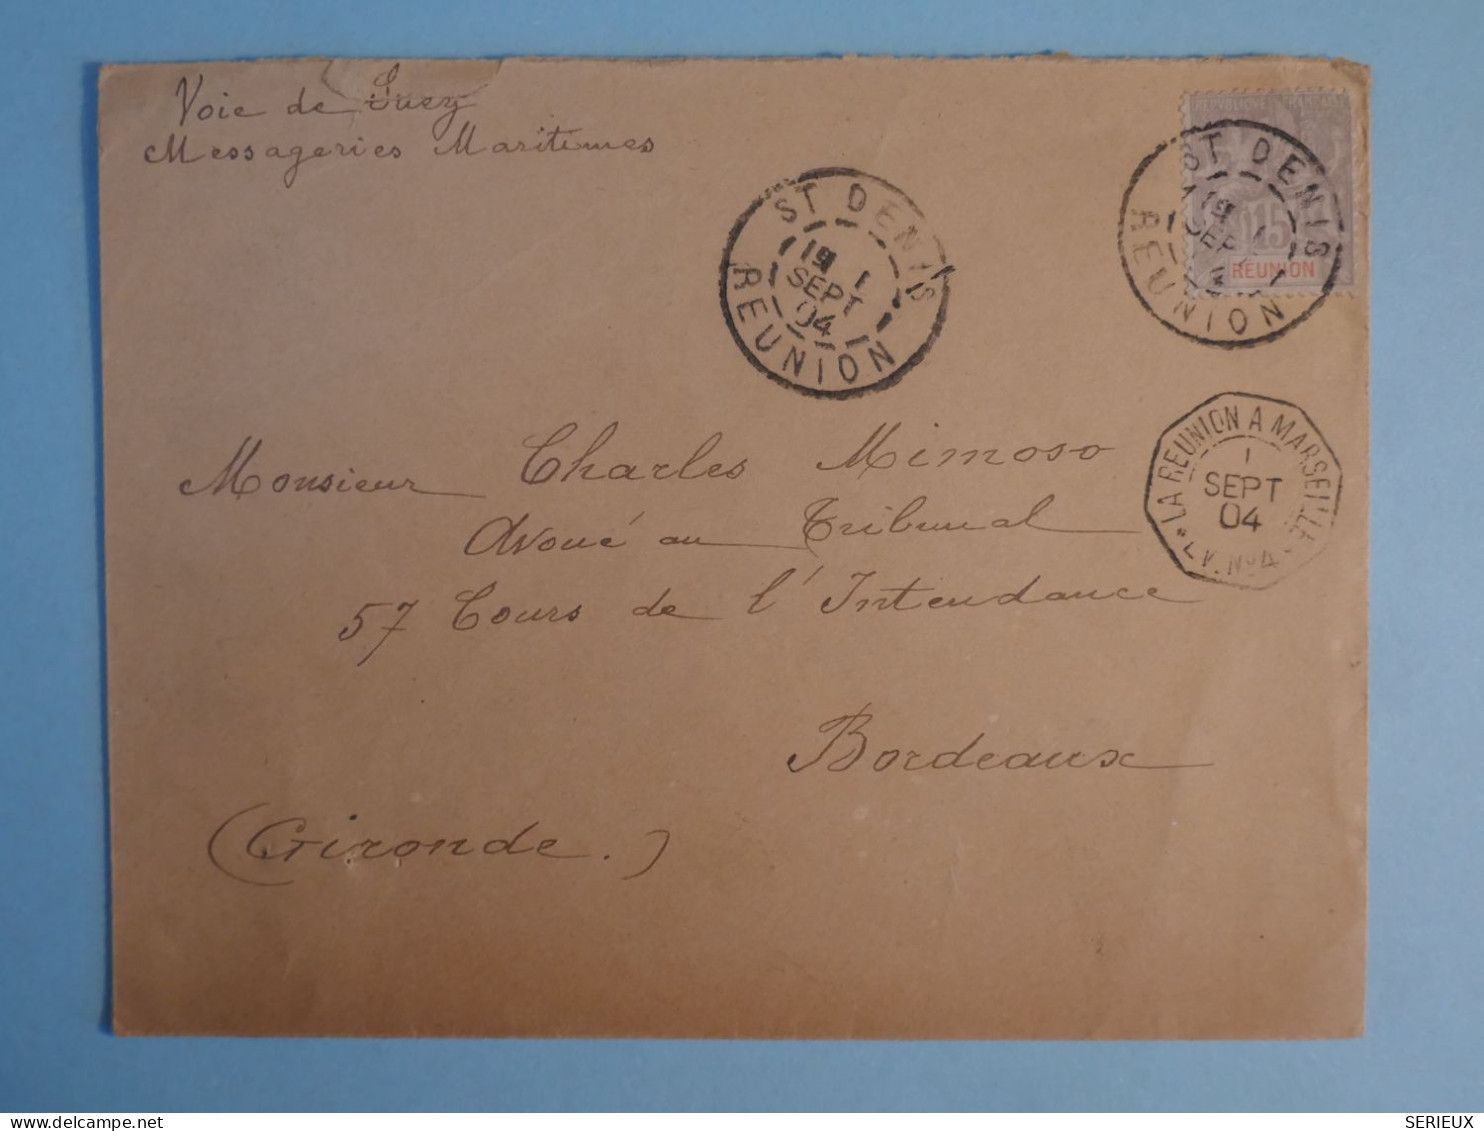 Voie de Suez
Messageries Maritimes
RÉPUBLIQUE FRANÇAISE
15
RÉUNION
ST DENIS
19 1
SEPT
04
REUNION
ST DENIS
19 1
SEPT
REUNION
LA REUNION A MARSEILLE
1
SEPT
04
L.V. No 4
Monsieur Charles Mimoso
Avoué au Tribunal
57 Cours de l'Intendance
Bordeaux
(Gironde.)
SERIEUX